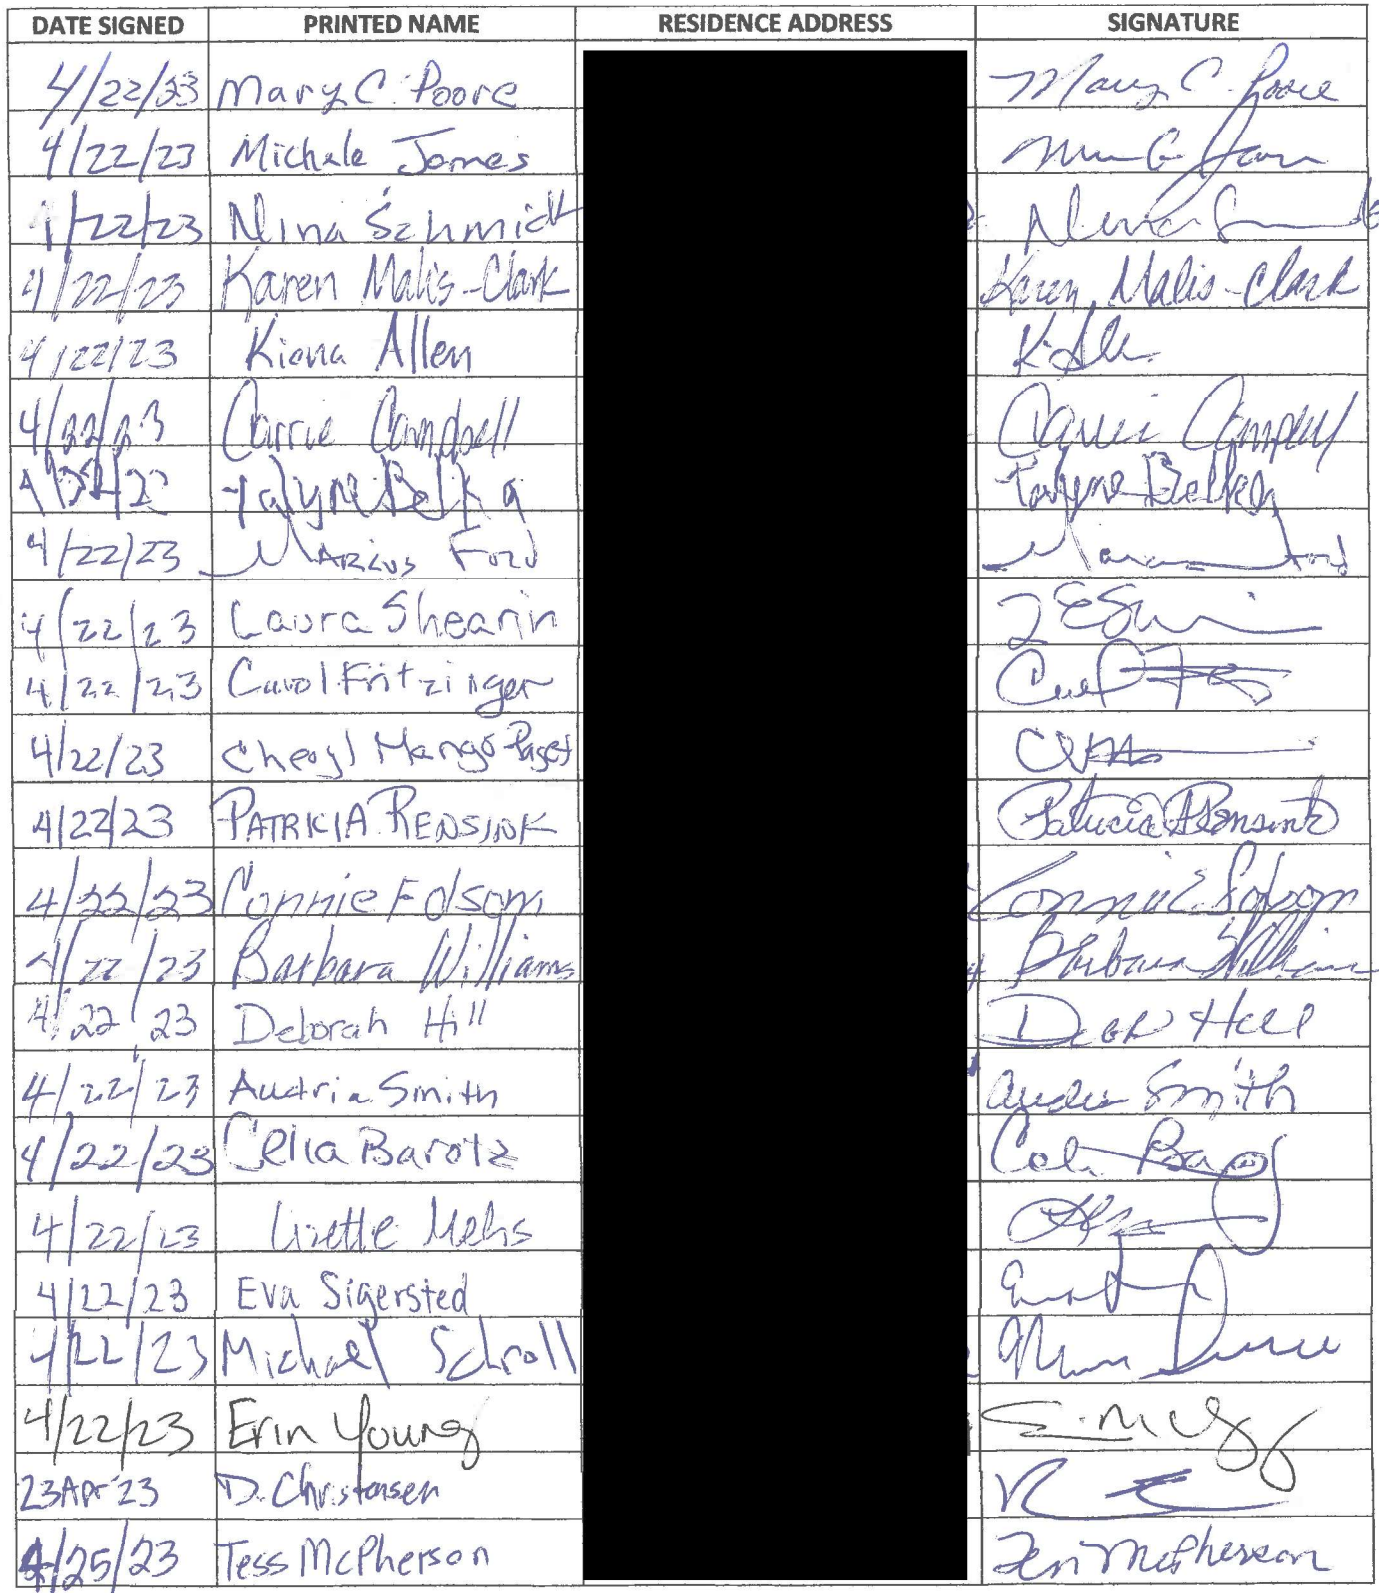 DATE SIGNED PRINTED NAME RESIDENCE ADDRESS SIGNATURE
4/22/23 Mary C. Poore Mary C. Poore
4/22/23 Michale James
4/22/23 Nina Schmidt Nina
4/22/23 Karen Malis-Clark Karen Malis-Clark
4/22/23 Kiona Allen K. Alle
4/22/23 Carrie Campbell Carrie Campbell
4/22/23
4/22/23 Marcus Ford Marcus Ford
4/22/23 Laura Shearin
4/22/23 Carol Fritzinger
4/22/23 Cheryl Mango-Paget
4/22/23 PATRICIA RENSINK Patricia Rensink
4/22/23 Connie Folsom Connie E Folsom
4/22/23 Barbara Williams Barbara Williams
4/22/23 Deborah Hill Deborah Hill
4/22/23 Audria Smith Audria Smith
4/22/23 Celia Barotz Celia Barotz
4/22/23 Lizette Melis
4/22/23 Eva Sigersted
4/22/23 Michael Schroll
4/22/23 Erin Young
23 Apr 23 D. Christensen
4/25/23 Tess McPherson Tess McPherson